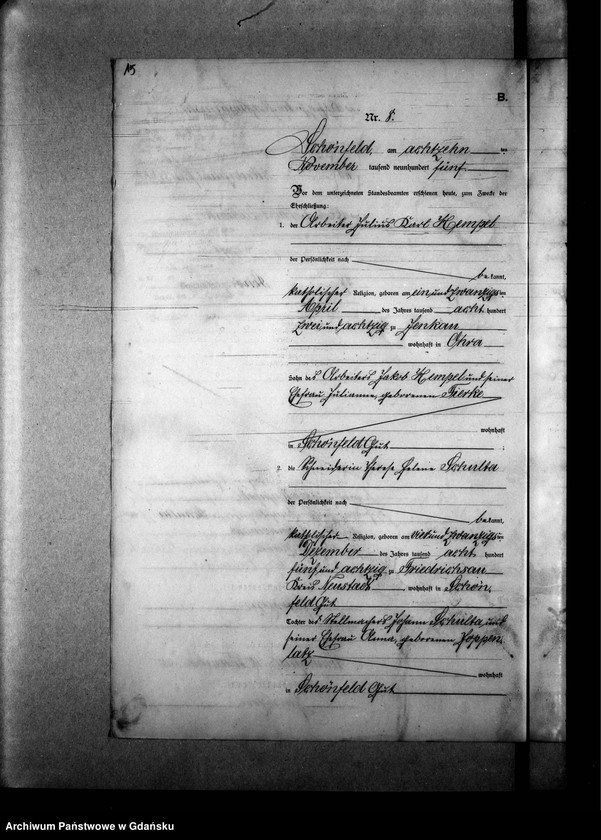 15
B.
Nr. 8.
Schönfeld, am achtzehn ten
November tausend neunhundert fünf
Vor dem unterzeichneten Standesbeamten erschienen heute, zum Zwecke der
Eheschließung:
1. der Arbeiter Julius Karl Hempel
der Persönlichkeit nach
be kannt,
katholischer Religion, geboren am ein und zwanzigsten
April des Jahres tausend acht hundert
zwei und achtzig zu Jenkau
wohnhaft in Ohra
Sohn des Arbeiters Jakob Hempel und seiner
Ehefrau Julianne, geborenen Fierke
wohnhaft
in Schönfeld Gut ;
2. die Schneiderin Therese Helene Schulta
der Persönlichkeit nach
be kannt,
katholischer Religion, geboren am acht und zwanzigsten
Dezember des Jahres tausend acht hundert
fünf und achtzig zu Friedrichsau
Kreis Neustadt, wohnhaft in Schön,
feld Gut
Tochter des Stellmachers Johann Schulta, und
seiner Ehefrau Anna, geborenen Joppen,
latz
wohnhaft
in Schönfeld Gut
Archiwum Państwowe w Gdańsku